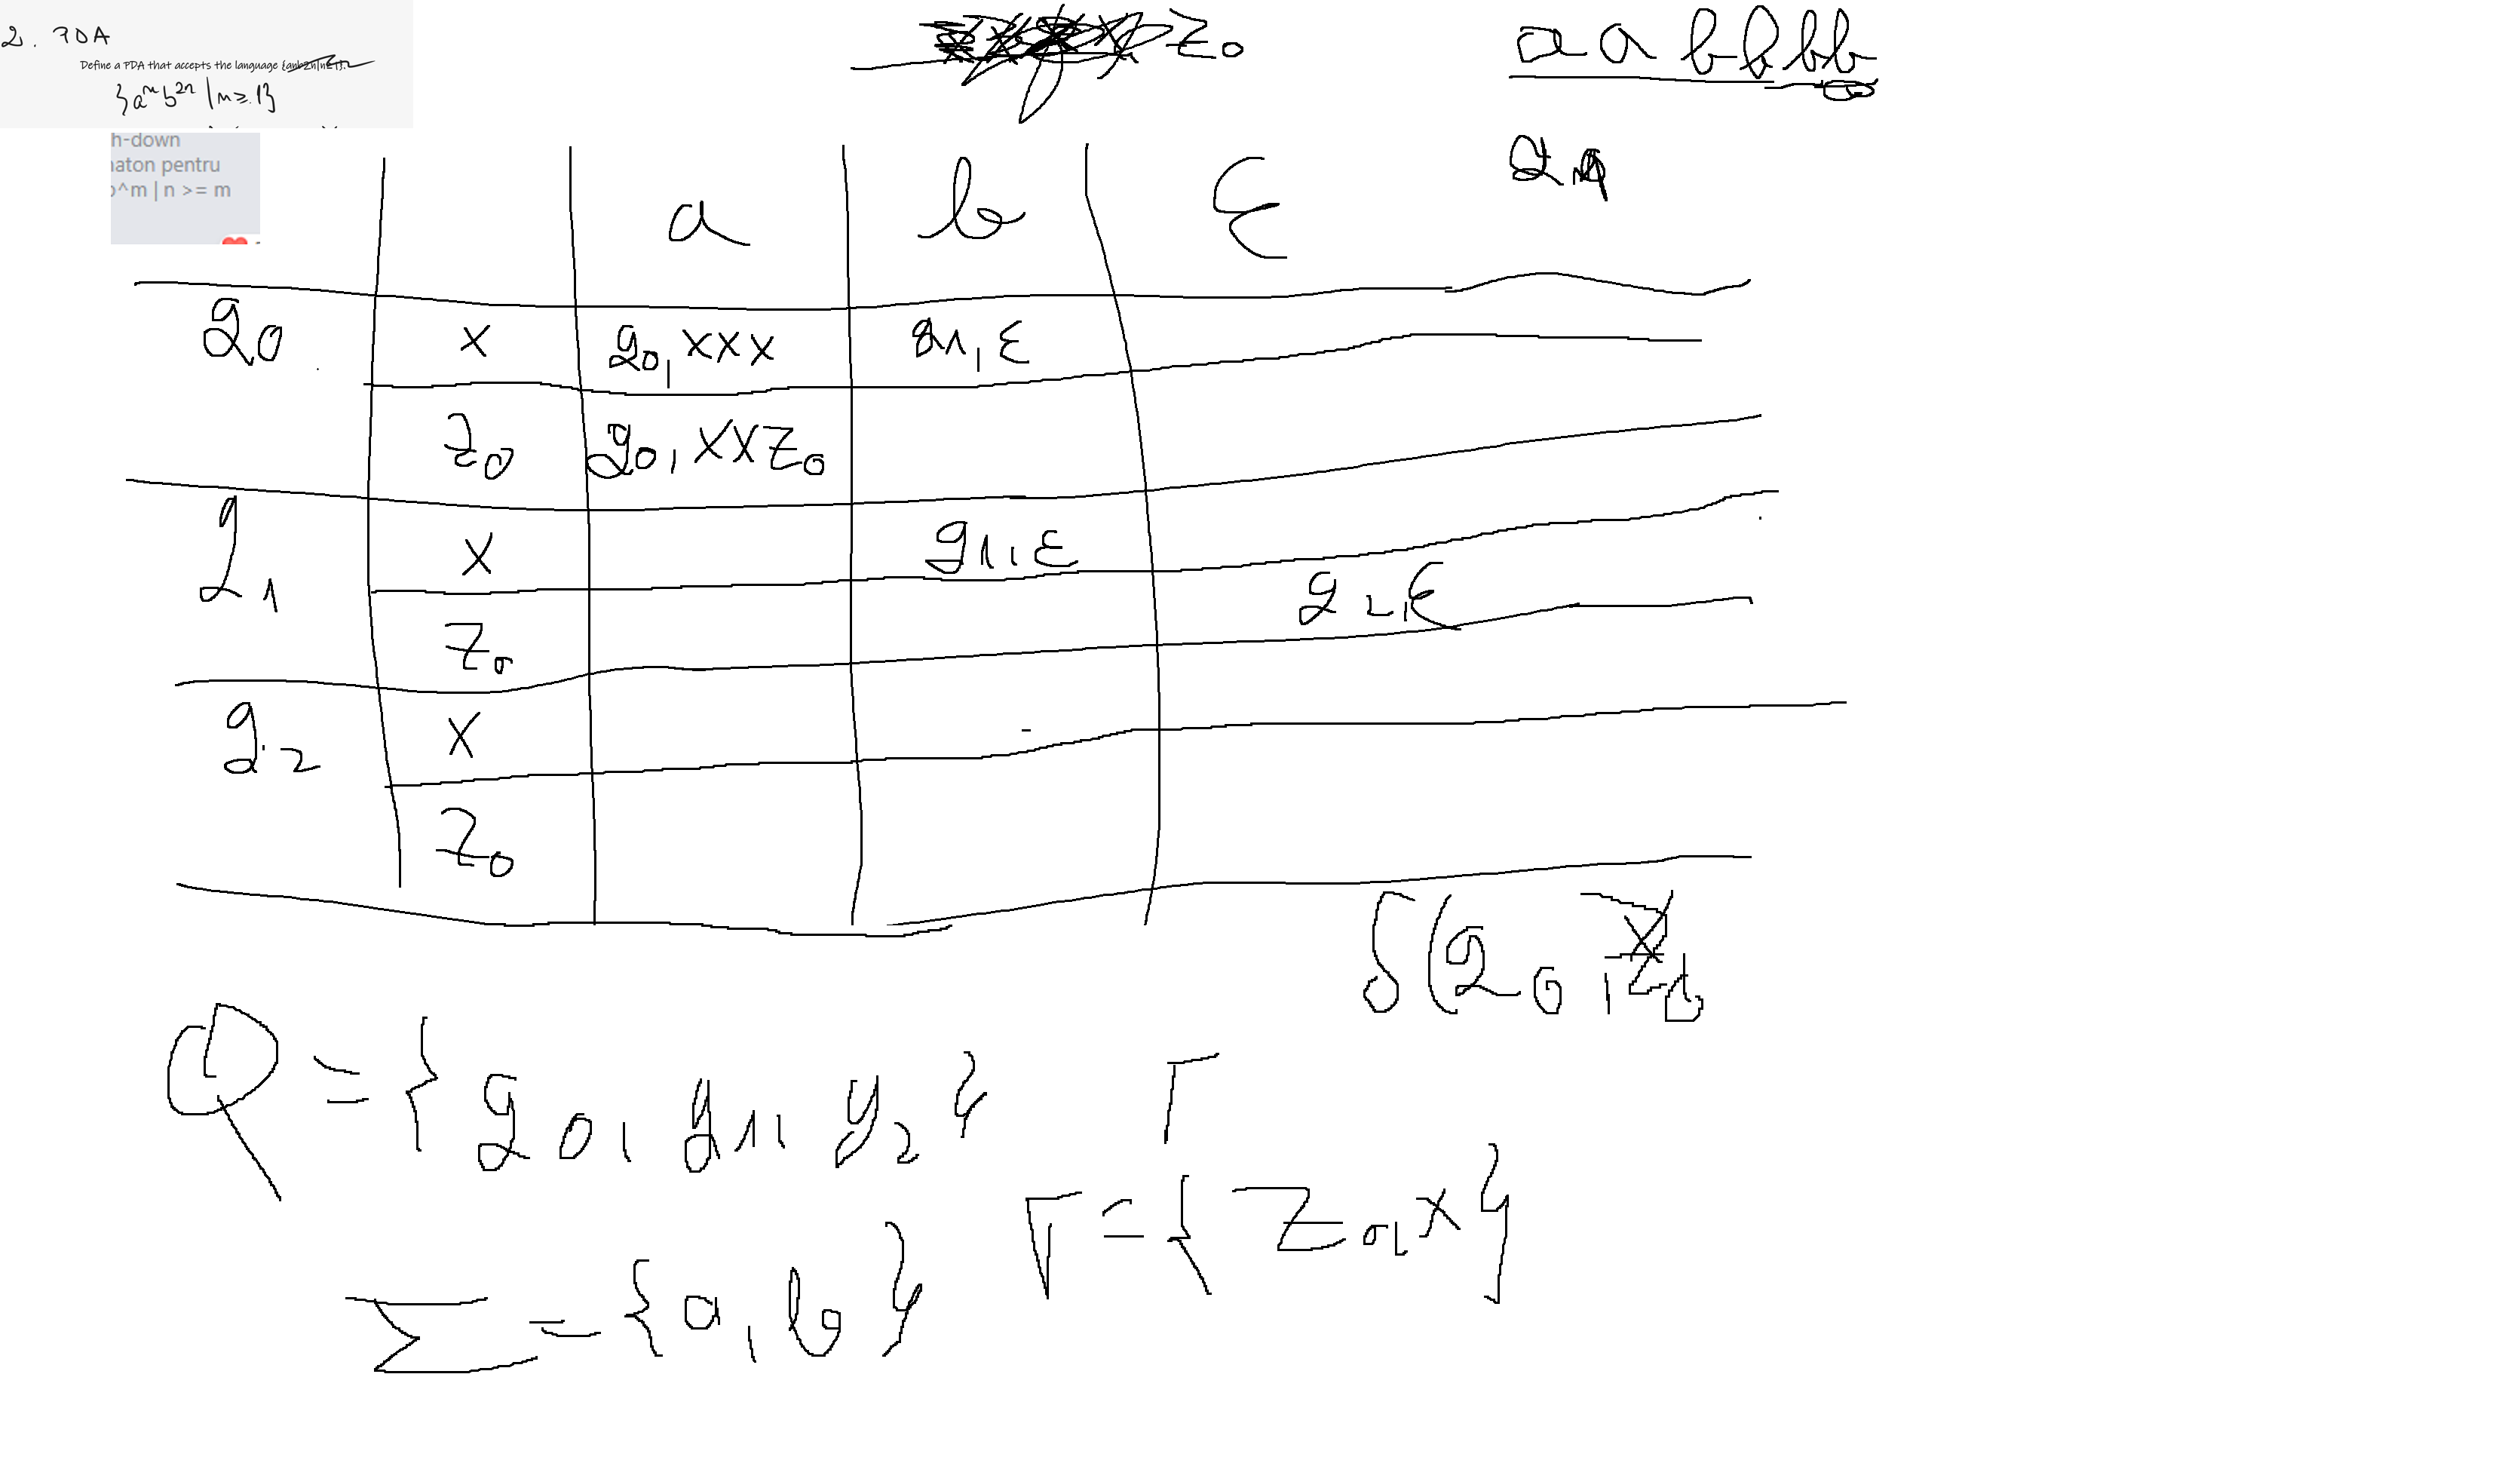 2. PDA
Define a PDA that accepts the language
{aⁿb²ⁿ | n ≥ 1}
h-down
naton pentru
b^m | n >= m
z₀
a a b b b b
a b ε
q₀ x q₀, xxx q₁, ε
z₀ q₀, xxz₀
q₁ x q₁, ε
z₀ q₂, ε
q₂ x
z₀
δ(q₀,
Q = { q₀, q₁, q₂ }
Γ
Γ = { z₀, x }
Σ = { a, b }